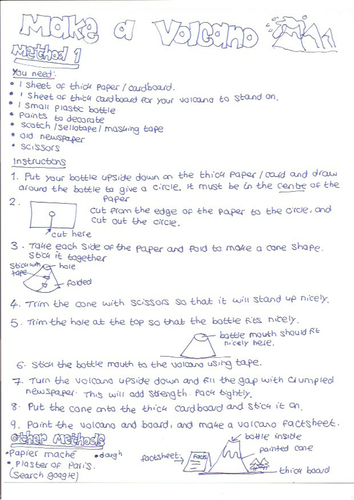 Make a Volcano
Method 1
You need:
• 1 sheet of thick paper/cardboard.
• 1 Sheet of thick cardboard for your volcano to stand on.
• 1 small plastic bottle
• paints to decorate
• scotch/sellotape/masking tape
• old newspaper
• scissors
Instructions
1. Put your bottle upside down on the thick paper/card and draw
around the bottle to give a circle. It must be in the centre of the
paper
2. cut from the edge of the paper to the circle, and
cut out the circle.
cut here
3. Take each side of the paper and fold to make a cone shape.
Stick it together
stick with tape
hole
folded
4. Trim the cone with scissors so that it will stand up nicely.
5. Trim the hole at the top so that the bottle fits nicely.
bottle mouth should fit
nicely here.
6. Stick the bottle mouth to the volcano using tape.
7. Turn the volcano upside down and fill the gap with crumpled
newspaper. This will add strength. Pack tightly.
8. Put the cone onto the thick cardboard and stick it on.
9. Paint the volcano and board, and make a volcano factsheet.
Other Methods
• Papier maché • dough
• Plaster of Paris.
(Search google)
factsheet
Facts
bottle inside
painted cone
thick board